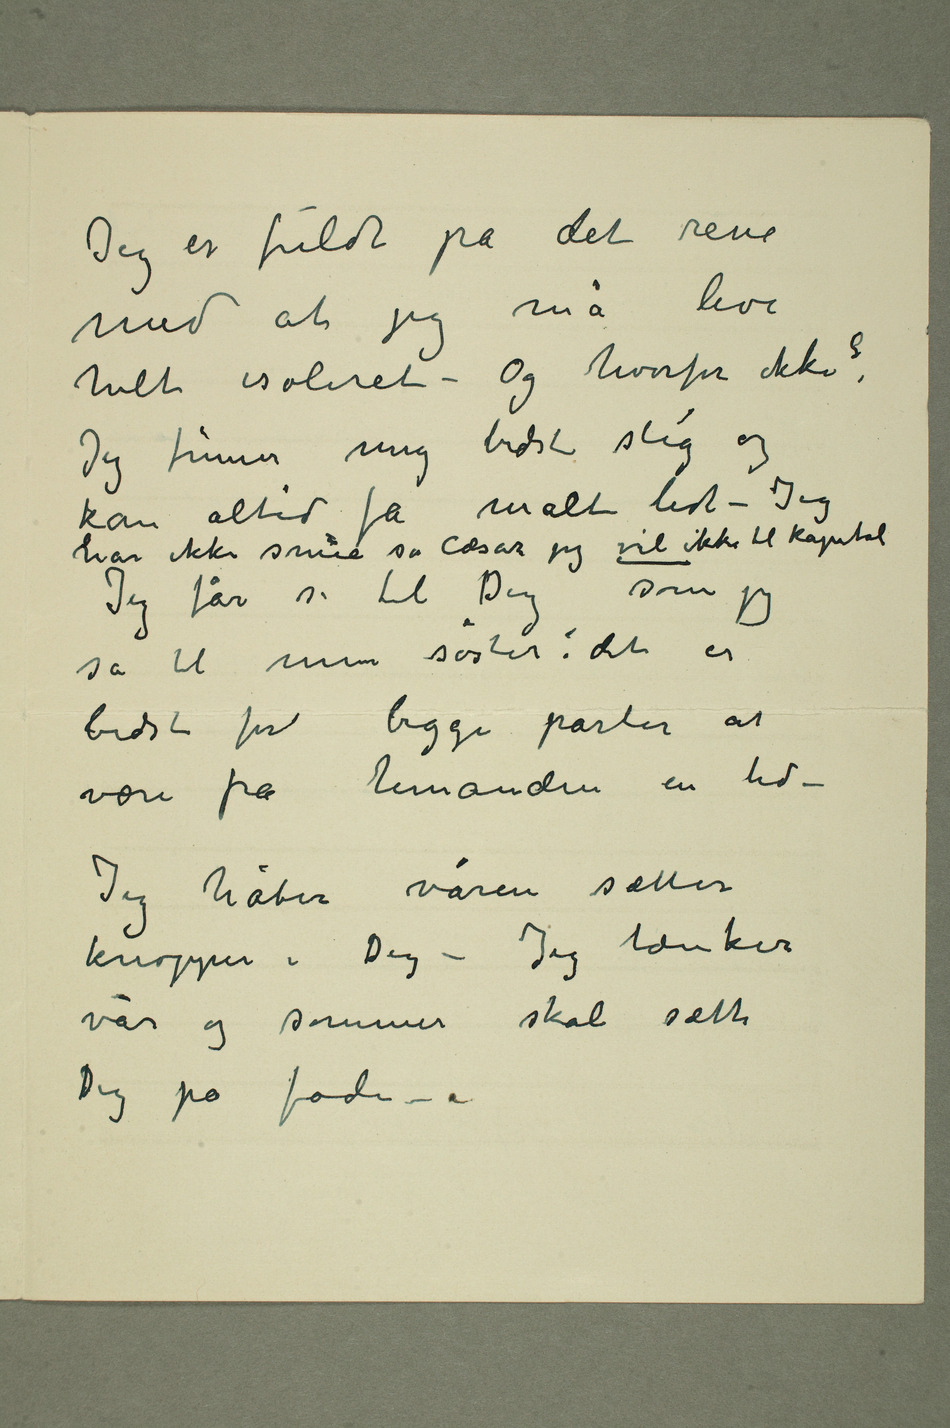 Jeg er fuldt på det rene
med at jeg må leve
helt isoleret – Og hvorfor ikke?
Jeg finner mig bedst slig og
kan altid få malt lidt – Jeg
har ikke så Cæsar jeg vil ikke til Kapital
Jeg får si til Dig som jeg
sa til min søster: det er
bedst for begge parter at
være fra hinanden en tid –
Jeg håber våren sætter
knopper i Dig – Jeg tænker
vår og sommer skal sætte
Dig på fode –